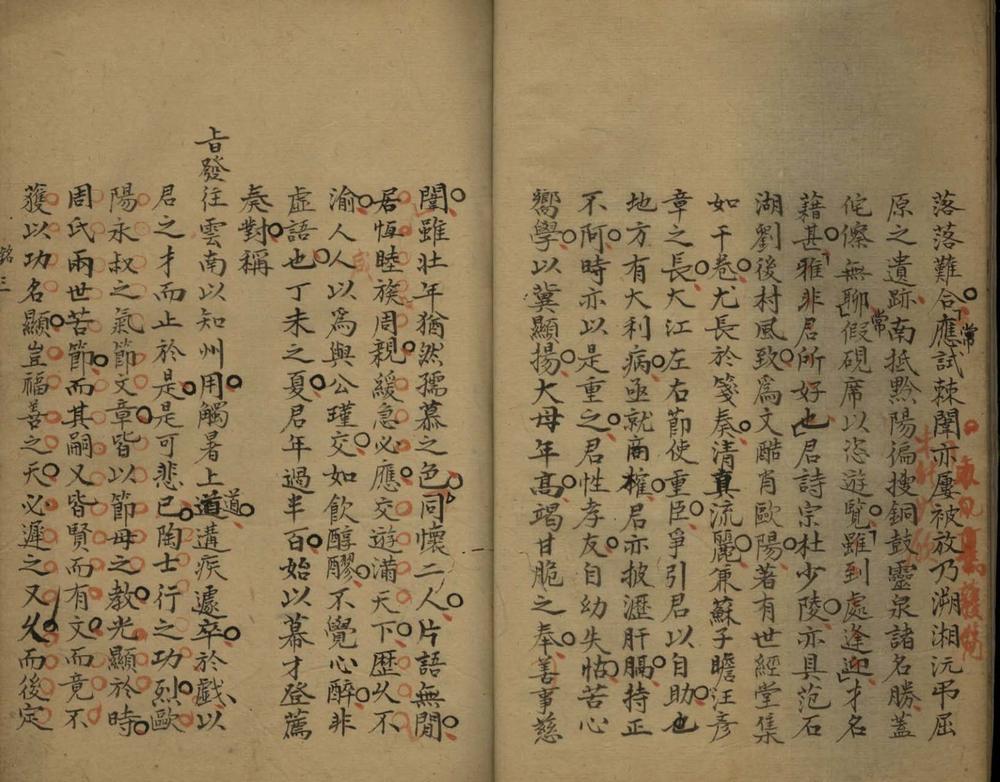 落落難合應試棘闈亦屢被放乃溯湘沅弔屈
常
原之遺跡南抵黔陽徧搜銅鼓靈泉諸名勝蓋
侘傺無聊假硯席以恣遊覽雖到處逢迎才名
常
藉甚雅非君所好也君詩宗杜少陵亦具范石
湖劉後村風致為文酷肖歐陽著有世經堂集
如干卷尤長於箋奏清真流麗兼蘇子瞻汪彥
章之長大江左右節使重臣爭引君以自助也
地方有大利病亟就商榷君亦披瀝肝膈持正
不阿時亦以是重之君性孝友自幼失怙苦心
嚮學以冀顯揚大母年高竭甘脆之奉善事慈
闈雖壯年猶然孺慕之色同懷二人片語無間
居恆睦族周親緩急必應交遊滿天下歷久不
渝人人以為與公瑾交如飲醇醪不覺心醉非
虛語也丁未之夏君年過半百始以幕才登薦
奏對稱
旨發往雲南以知州用觸暑上道遘疾遽卒於戲以
道
君之才而止於是是可悲已陶士行之功烈歐
陽永叔之氣節文章皆以節母之教光顯於時
周氏兩世苦節而其嗣又皆賢而有文而竟不
獲以功名顯豈福善之天必遲之又久而後定
銘三